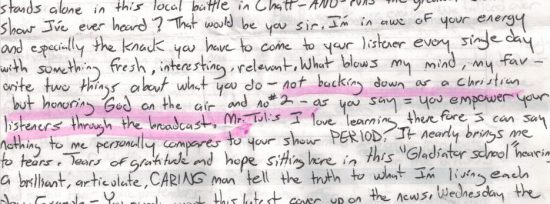 stands alone in this local battle in Chatt-AND-runs the
show I've ever heard? That would be you sir. I'm in awe of your energy
and especially the knack you have to come to your listener every single day
with something fresh, interesting, relevant. What blows my mind, my fav-
orite two things about what you do - not backing down as a Christian
but honoring God on the air and no# 2 - as you say = you empower your
listeners through the broadcast. Mr. Tulis I love learning therefore I can say
nothing to me personally compares to your show PERIOD! It nearly brings me
to tears. Tears of gratitude and hope sitting here in this "Gladiator school" hearing
a brilliant, articulate, CARING man tell the truth to what I'm living each
day. Example - You this latest cover up on the news, Wednesday the